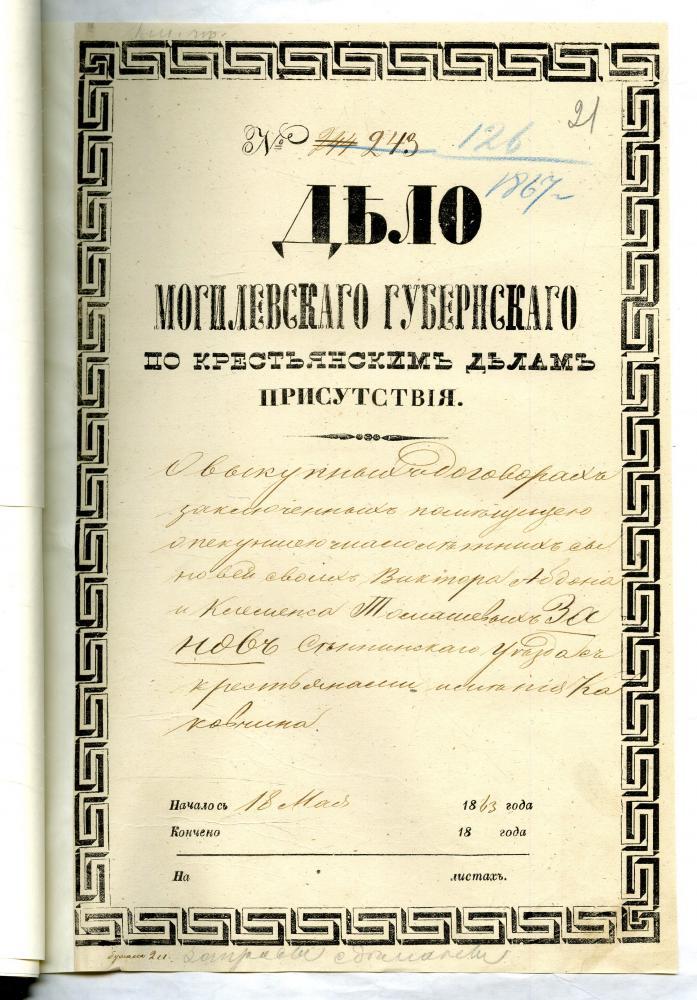 21
№ 244 243 126
1867
ДѢЛО
МОГИЛЕВСКАГО ГУБЕРНСКАГО
ПО КРЕСТЬЯНСКИМЪ ДѢЛАМЪ
ПРИСУТСТВІЯ.
О выкупныхъ договорахъ
заключенныхъ помѣщицею
опекуншею малолѣтнихъ сы
новей своихъ Виктора Абдона
и Клеменса Томашевыхъ За
новъ Сѣннинскаго уѣзда съ
крестьянами имѣнія Ка
ковчина.
Началось 18 Мая 1863 года
Кончено 18 года
На листахъ.